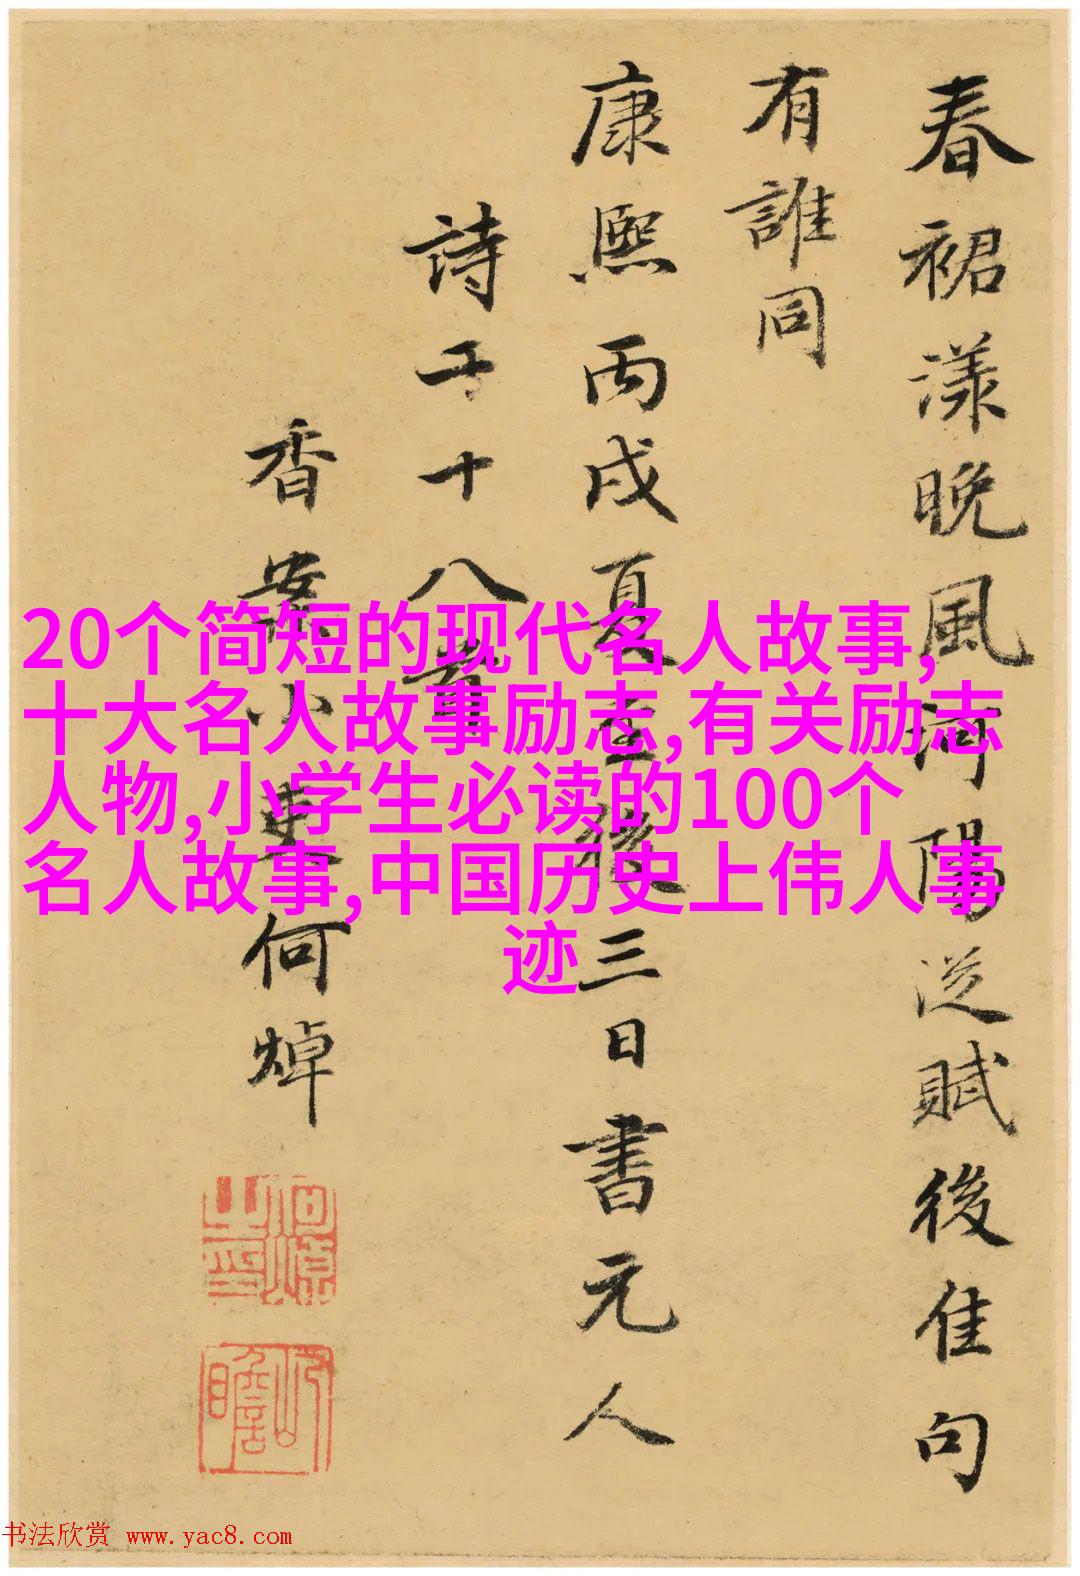 春裙漾晚風河陽從賦後佳句
有誰同
康熙丙戌夏至後三日書元人
詩十八首
香案小吏何焯
何焯之印
屺瞻
20个简短的现代名人故事,
十大名人故事励志,有关励志
人物,小学生必读的100个
名人故事,中国历史上伟人事
迹
书法欣赏 www.yac8.com